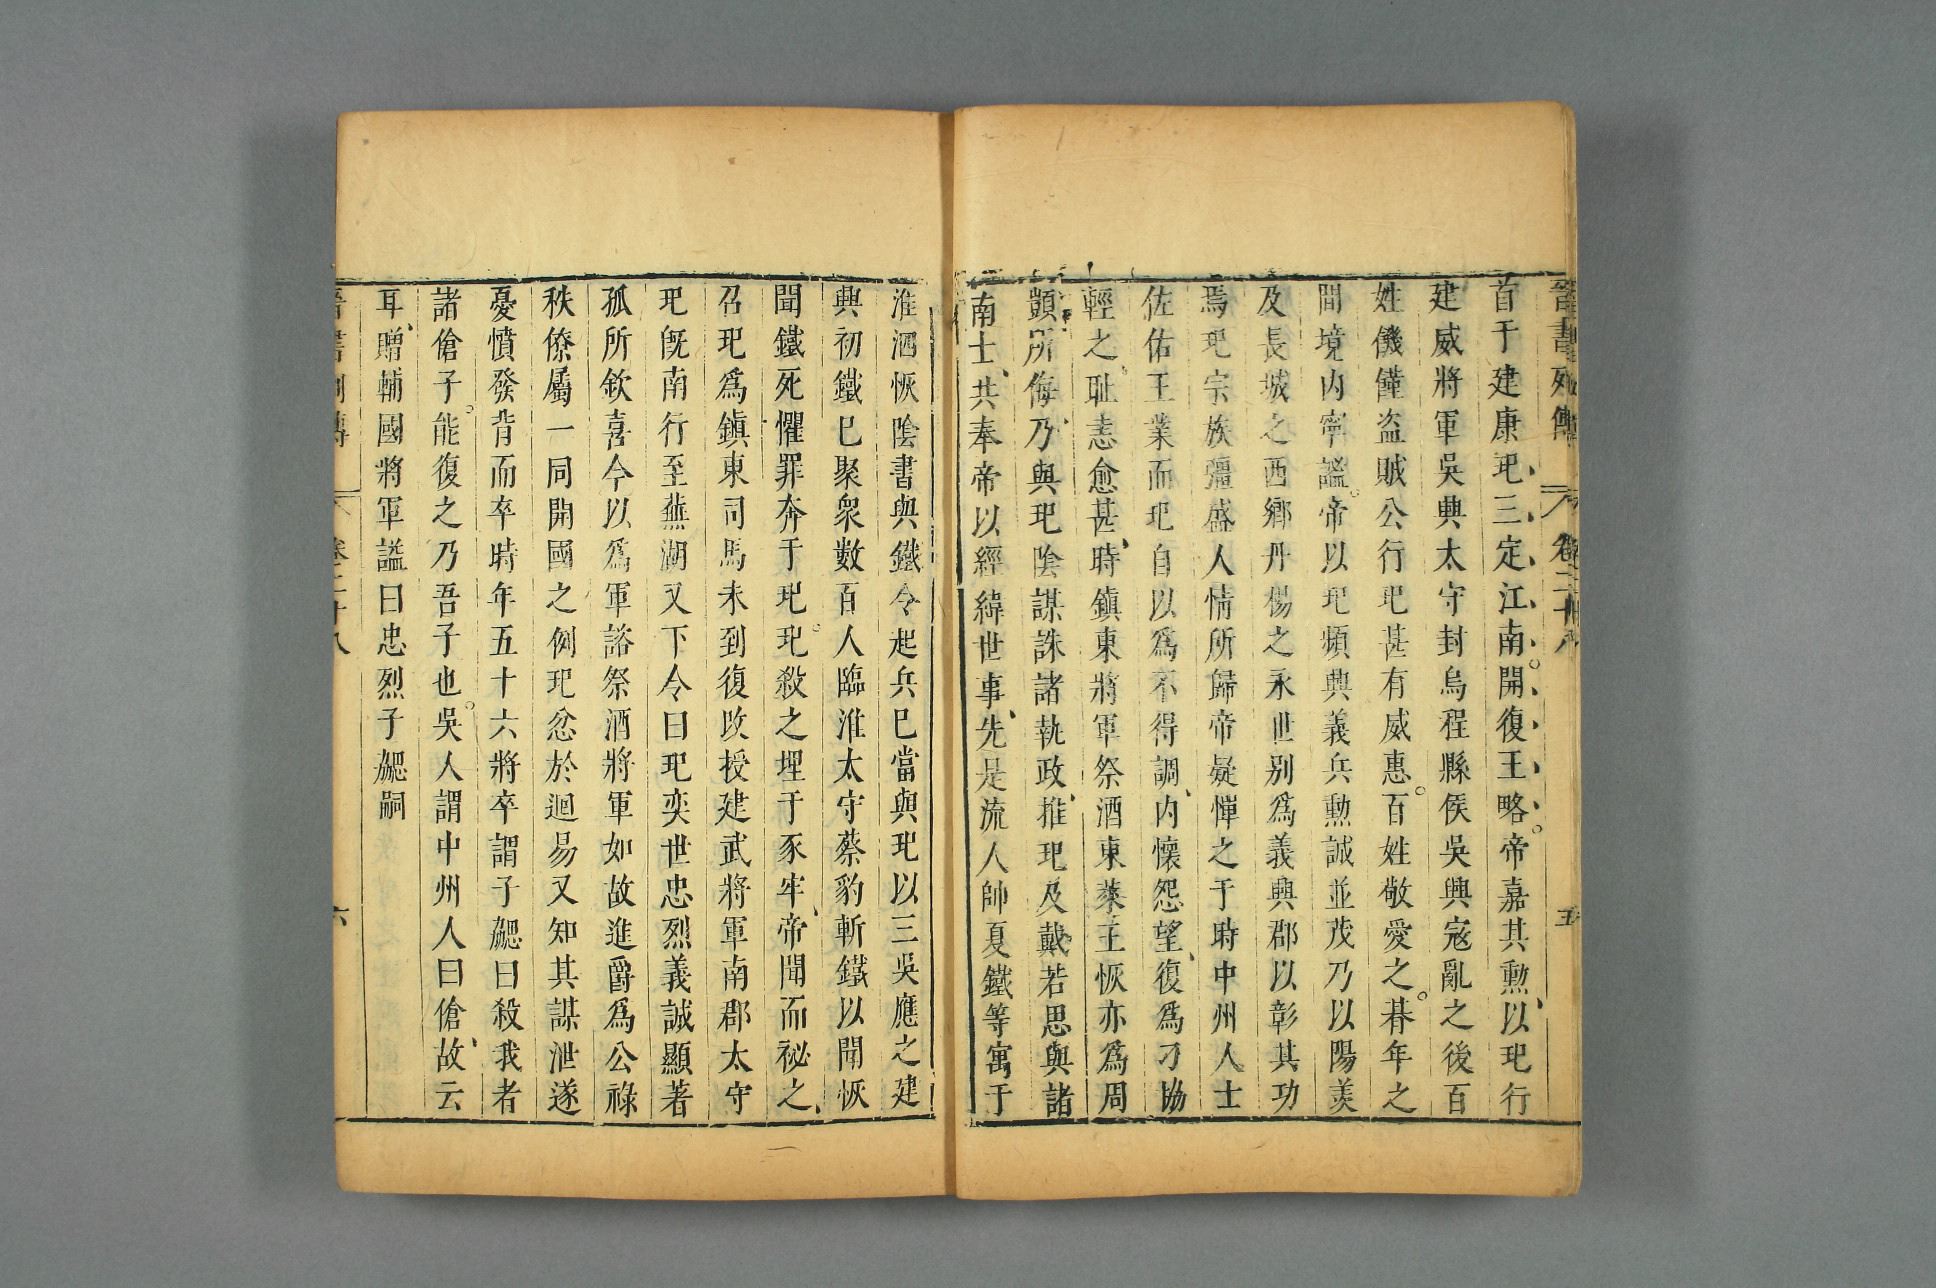 晉書列傳 卷二十八 五
首于建康玘三定江南開復王略帝嘉其勲以玘行
建威將軍吳興太守封烏程縣侯吳興寇亂之後百
姓饑饉盗賊公行玘甚有威惠百姓敬愛之朞年之
間境内寧謐帝以玘頻興義兵勲誠並茂乃以陽羨
及長城之西鄉丹楊之永世别爲義興郡以彰其功
焉玘宗族彊盛人情所歸帝疑憚之于時中州人士
佐佑王業而玘自以爲不得調内懷怨望復爲刁協
輕之耻恚愈甚時鎮東將軍祭酒東萊王恢亦爲周
顗所侮乃與玘陰謀誅諸執政推玘及戴若思與諸
南士共奉帝以經緯世事先是流人帥夏鐵等寓于
淮泗恢陰書與鐵令起兵巳當與玘以三吳應之建
興初鐵巳聚衆數百人臨淮太守蔡豹斬鐵以聞恢
聞鐵死懼罪奔于玘玘殺之埋于豕牢帝聞而祕之
召玘爲鎮東司馬未到復改授建武將軍南郡太守
玘旣南行至蕪湖又下令曰玘奕世忠烈義誠顯著
孤所欽喜今以爲軍諮祭酒將軍如故進爵爲公祿
秩僚屬一同開國之例玘忿於迴易又知其謀泄遂
憂憤發背而卒時年五十六將卒謂子勰曰殺我者
諸傖子能復之乃吾子也吳人謂中州人曰傖故云
耳贈輔國將軍謚曰忠烈子勰嗣
晉書列傳 卷二十八 六